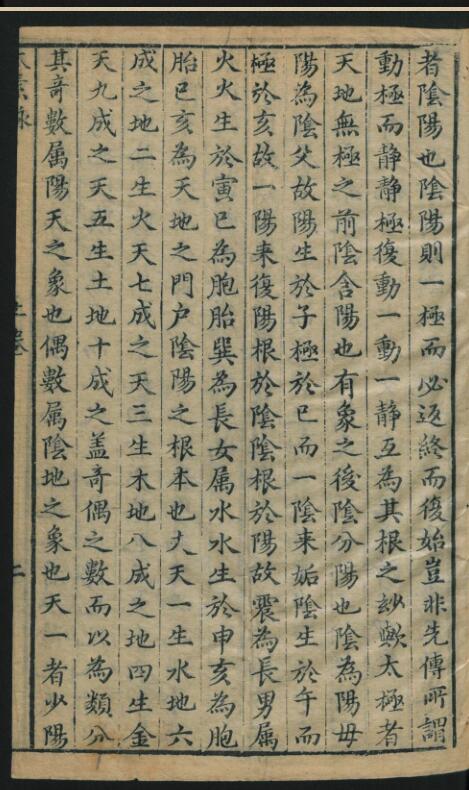 者陰陽也陰陽則一極而必返終而復始豈非先傳所謂
動極而静静極復動一動一静互為其根之玅歟太極者
天地無極之前陰含陽也有象之後陰分陽也陰為陽母
陽為陰父故陽生於子極於巳而一陰来姤陰生於午而
極於亥故一陽来復陽根於陰陰根於陽故震為長男属
火火生於寅巳為胞胎巽為長女属水水生於申亥為胞
胎巳亥為天地之門户陰陽之根本也夫天一生水地六
成之地二生火天七成之天三生木地八成之地四生金
天九成之天五生土地十成之盖奇偶之數而以為類分
其奇數属陽天之象也偶數属陰地之象也天一者少陽
上卷
二